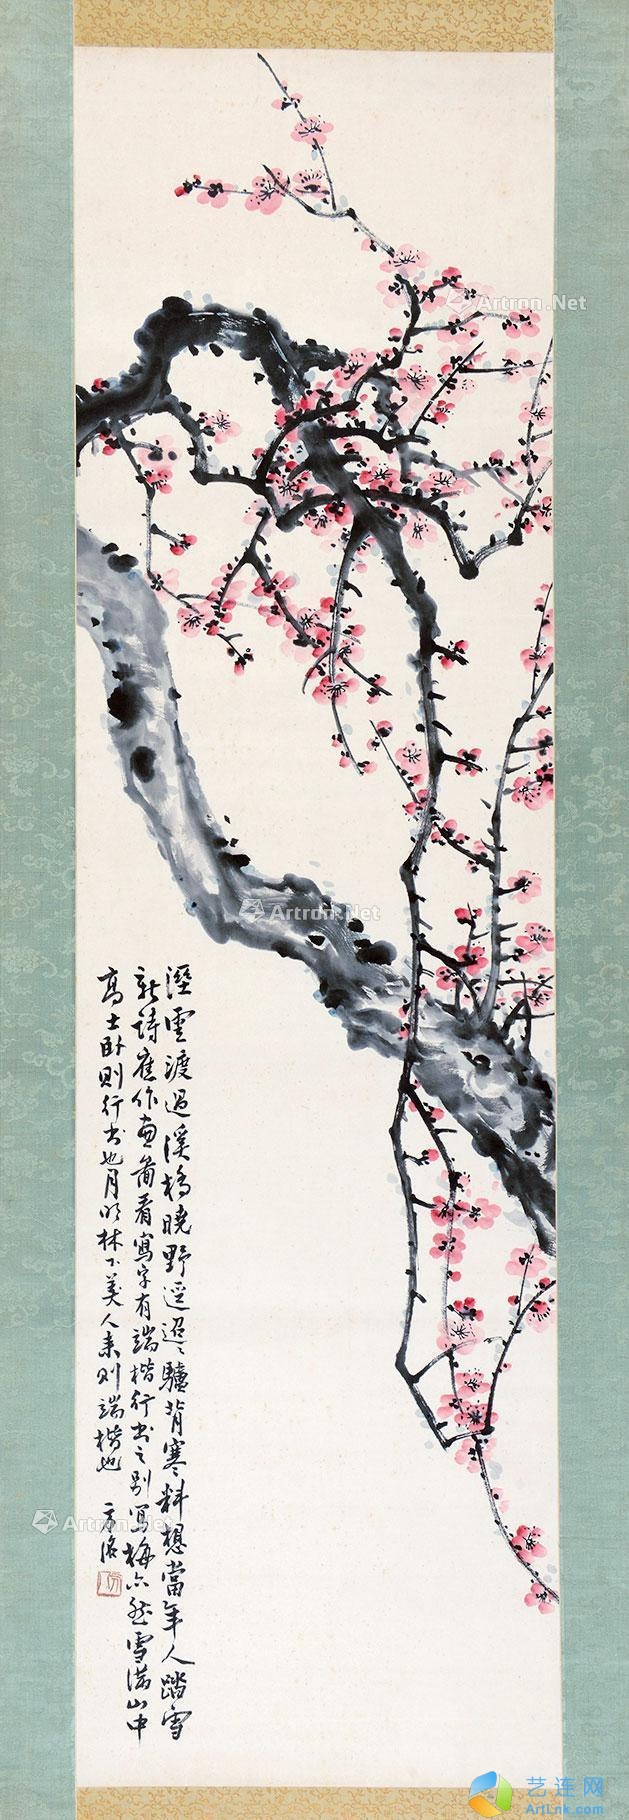 溼雲渡過溪橋曉野逕迢迢驢背寒料想當年人踏雪
新詩應作畫圖看寫字有端楷行書之別寫梅亦然雪滿山中
高士臥則行書也月明林下美人来則端楷也
Artron.Net
Artron.Net
Artron.Net
艺连网
ArtLnk.com